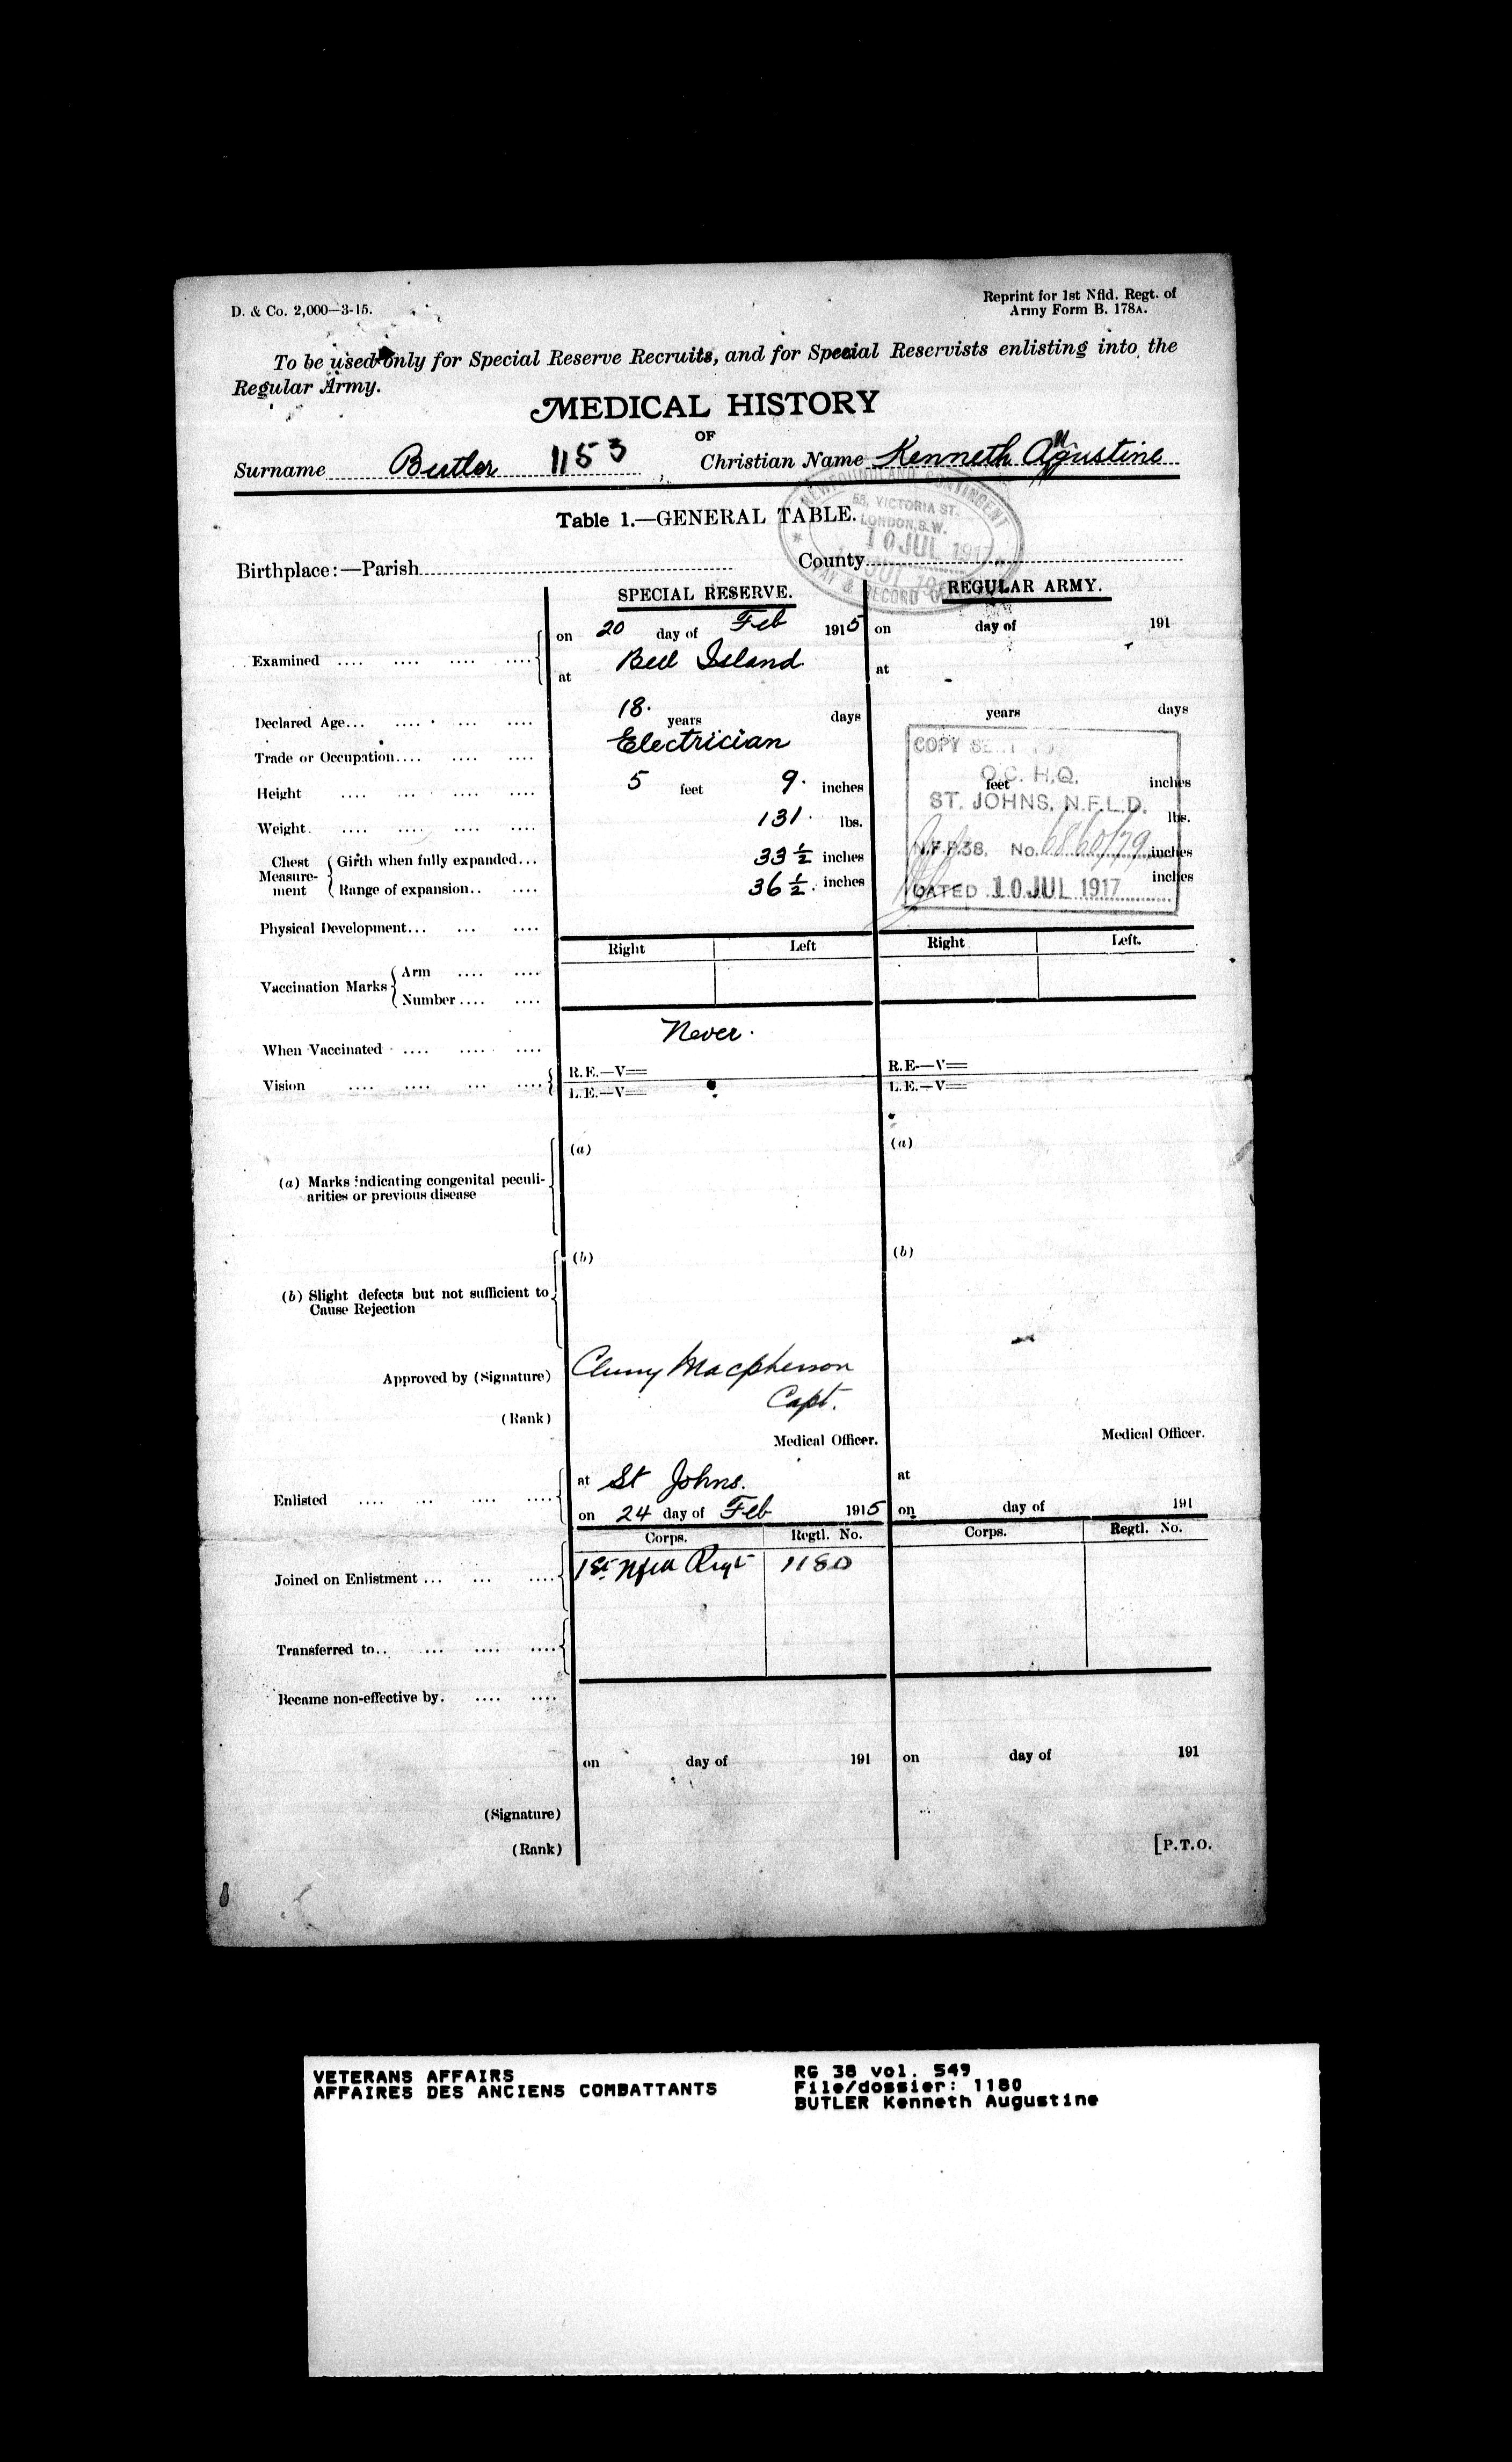 D. & Co. 2,000—3-15.
Reprint for 1st Nfld. Regt. of
Army Form B. 178A.
To be used only for Special Reserve Recruits, and for Special Reservists enlisting into the
Regular Army.
MEDICAL HISTORY
OF
Surname Butler 1153, Christian Name Kenneth Augustine
NEWFOUNDLAND CONTINGENT
58, VICTORIA ST.
LONDON, S.W.
10 JUL 1917
PAY & RECORD
Table 1.—GENERAL TABLE.
Birthplace:—Parish County
SPECIAL RESERVE. REGULAR ARMY.
Examined .... .... .... .... on 20 day of Feb 1915 on day of 191
at Bell Island at
Declared Age... .... ... .... 18. years days years days
Trade or Occupation.... .... .... Electrician
Height .... ... .... .... 5 feet 9. inches feet inches
Weight. .... .... .... .... 131. lbs. lbs.
Chest Measurement Girth when fully expanded... 33 1/2 inches inches
Range of expansion.. .... 36 1/2. inches inches
COPY SENT TO
O.C. H.Q.
ST. JOHNS, N.F.L.D.
N.F.P.38. No. 6860/79
DATED 10 JUL 1917
Physical Development... ... ....
Right Left Right Left.
Vaccination Marks Arm .... ....
Number.... ....
When Vaccinated .... .... .... Never.
Vision .... .... ... .... R.E.—V= R.E.—V=
L.E.—V= L.E.—V=
(a) (a)
(a) Marks indicating congenital peculi-
arities or previous disease
(b) (b)
(b) Slight defects but not sufficient to
Cause Rejection
Approved by (Signature) Cluny Macpherson
Capt.
(Rank)
Medical Officer. Medical Officer.
at St Johns. at
Enlisted .... ... .... ....
on 24 day of Feb 1915 on day of 191
Corps. Regtl. No. Corps. Regtl. No.
Joined on Enlistment ... ... .... 1st Nfld Regt 1180
Transferred to.. ... .... ....
Became non-effective by. .... ....
on day of 191 on day of 191
(Signature)
(Rank)
[P.T.O.
VETERANS AFFAIRS
AFFAIRES DES ANCIENS COMBATTANTS
RG 38 vol. 549
File/dossier: 1180
BUTLER Kenneth Augustine